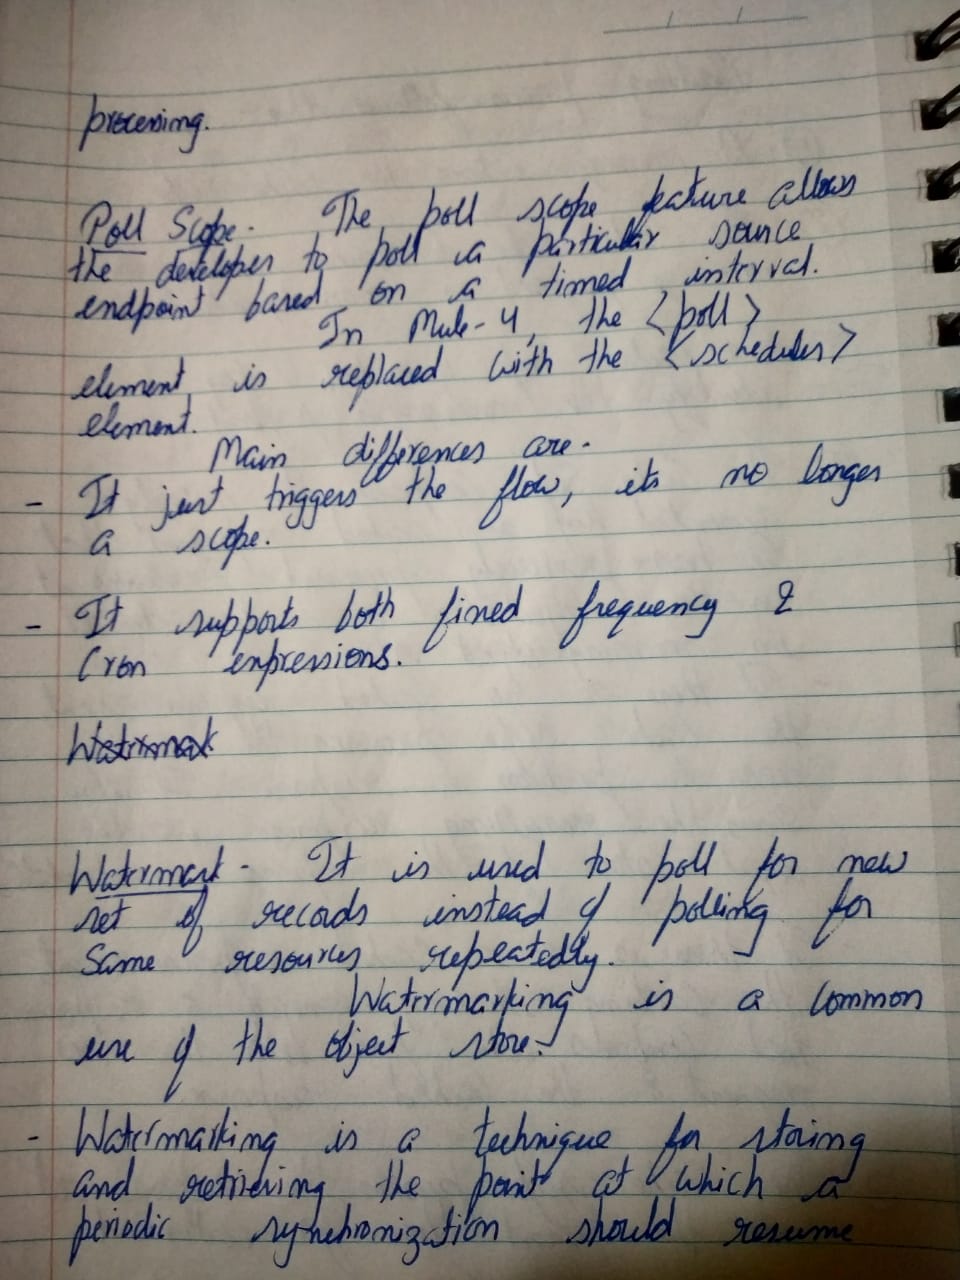 processing.
Poll Scope - The poll scope feature allows
the developer to poll a particular source
endpoint based on a timed interval.
In Mule-4, the <poll>
element is replaced with the <scheduler>
element.
Main differences are -
- It just triggers the flow, its no longer
a scope.
- It supports both fixed frequency &
Cron expressions.
Watermark
Watermark - It is used to poll for new
set of records instead of polling for
same resources repeatedly.
Watermarking is a common
use of the object store.
- Watermarking is a technique for storing
and retrieving the point at which a
periodic synchronization should resume